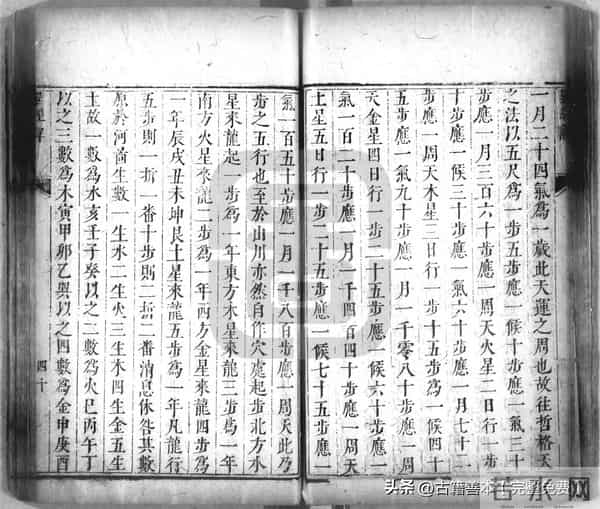 一月二十四氣為一歲此天運之周也故往哲格天
之法以五尺為一步五步應一候十步應一氣三十
步應一月三百六十步應一周天火星二日行一步
十步應一候三十步應一氣六十步應一月七十二十
步應一周天木星三日行一步十五步為一候四十
五步應一氣九十步應一月一千零八十步應一周
天金星四日行一步二十五步應一候六十步應一
氣一百二十步應一月一千四百四十步應一周天
土星五日行一步二十五步應一候七十五步應一
氣一百五十步應一月一千八百步應一周天此乃
步之五行也至於山川亦然自作穴處起步北方水
星來龍起一步為一年東方木星來龍三步為一年
南方火星來龍二步為一年西方金星來龍四步為
一年辰戌丑未坤艮土星來龍五步為一年凡龍行
五步則一折一番十步則二折二番消息休咎其數
原於河啇生數一生水二生火三生木四生金五生
土故一數為水亥壬子癸以之二數為火巳丙午丁
以之三數為木寅甲卯乙與以之四數為金申庚酉
四十
头条 @古籍善本 完整免费